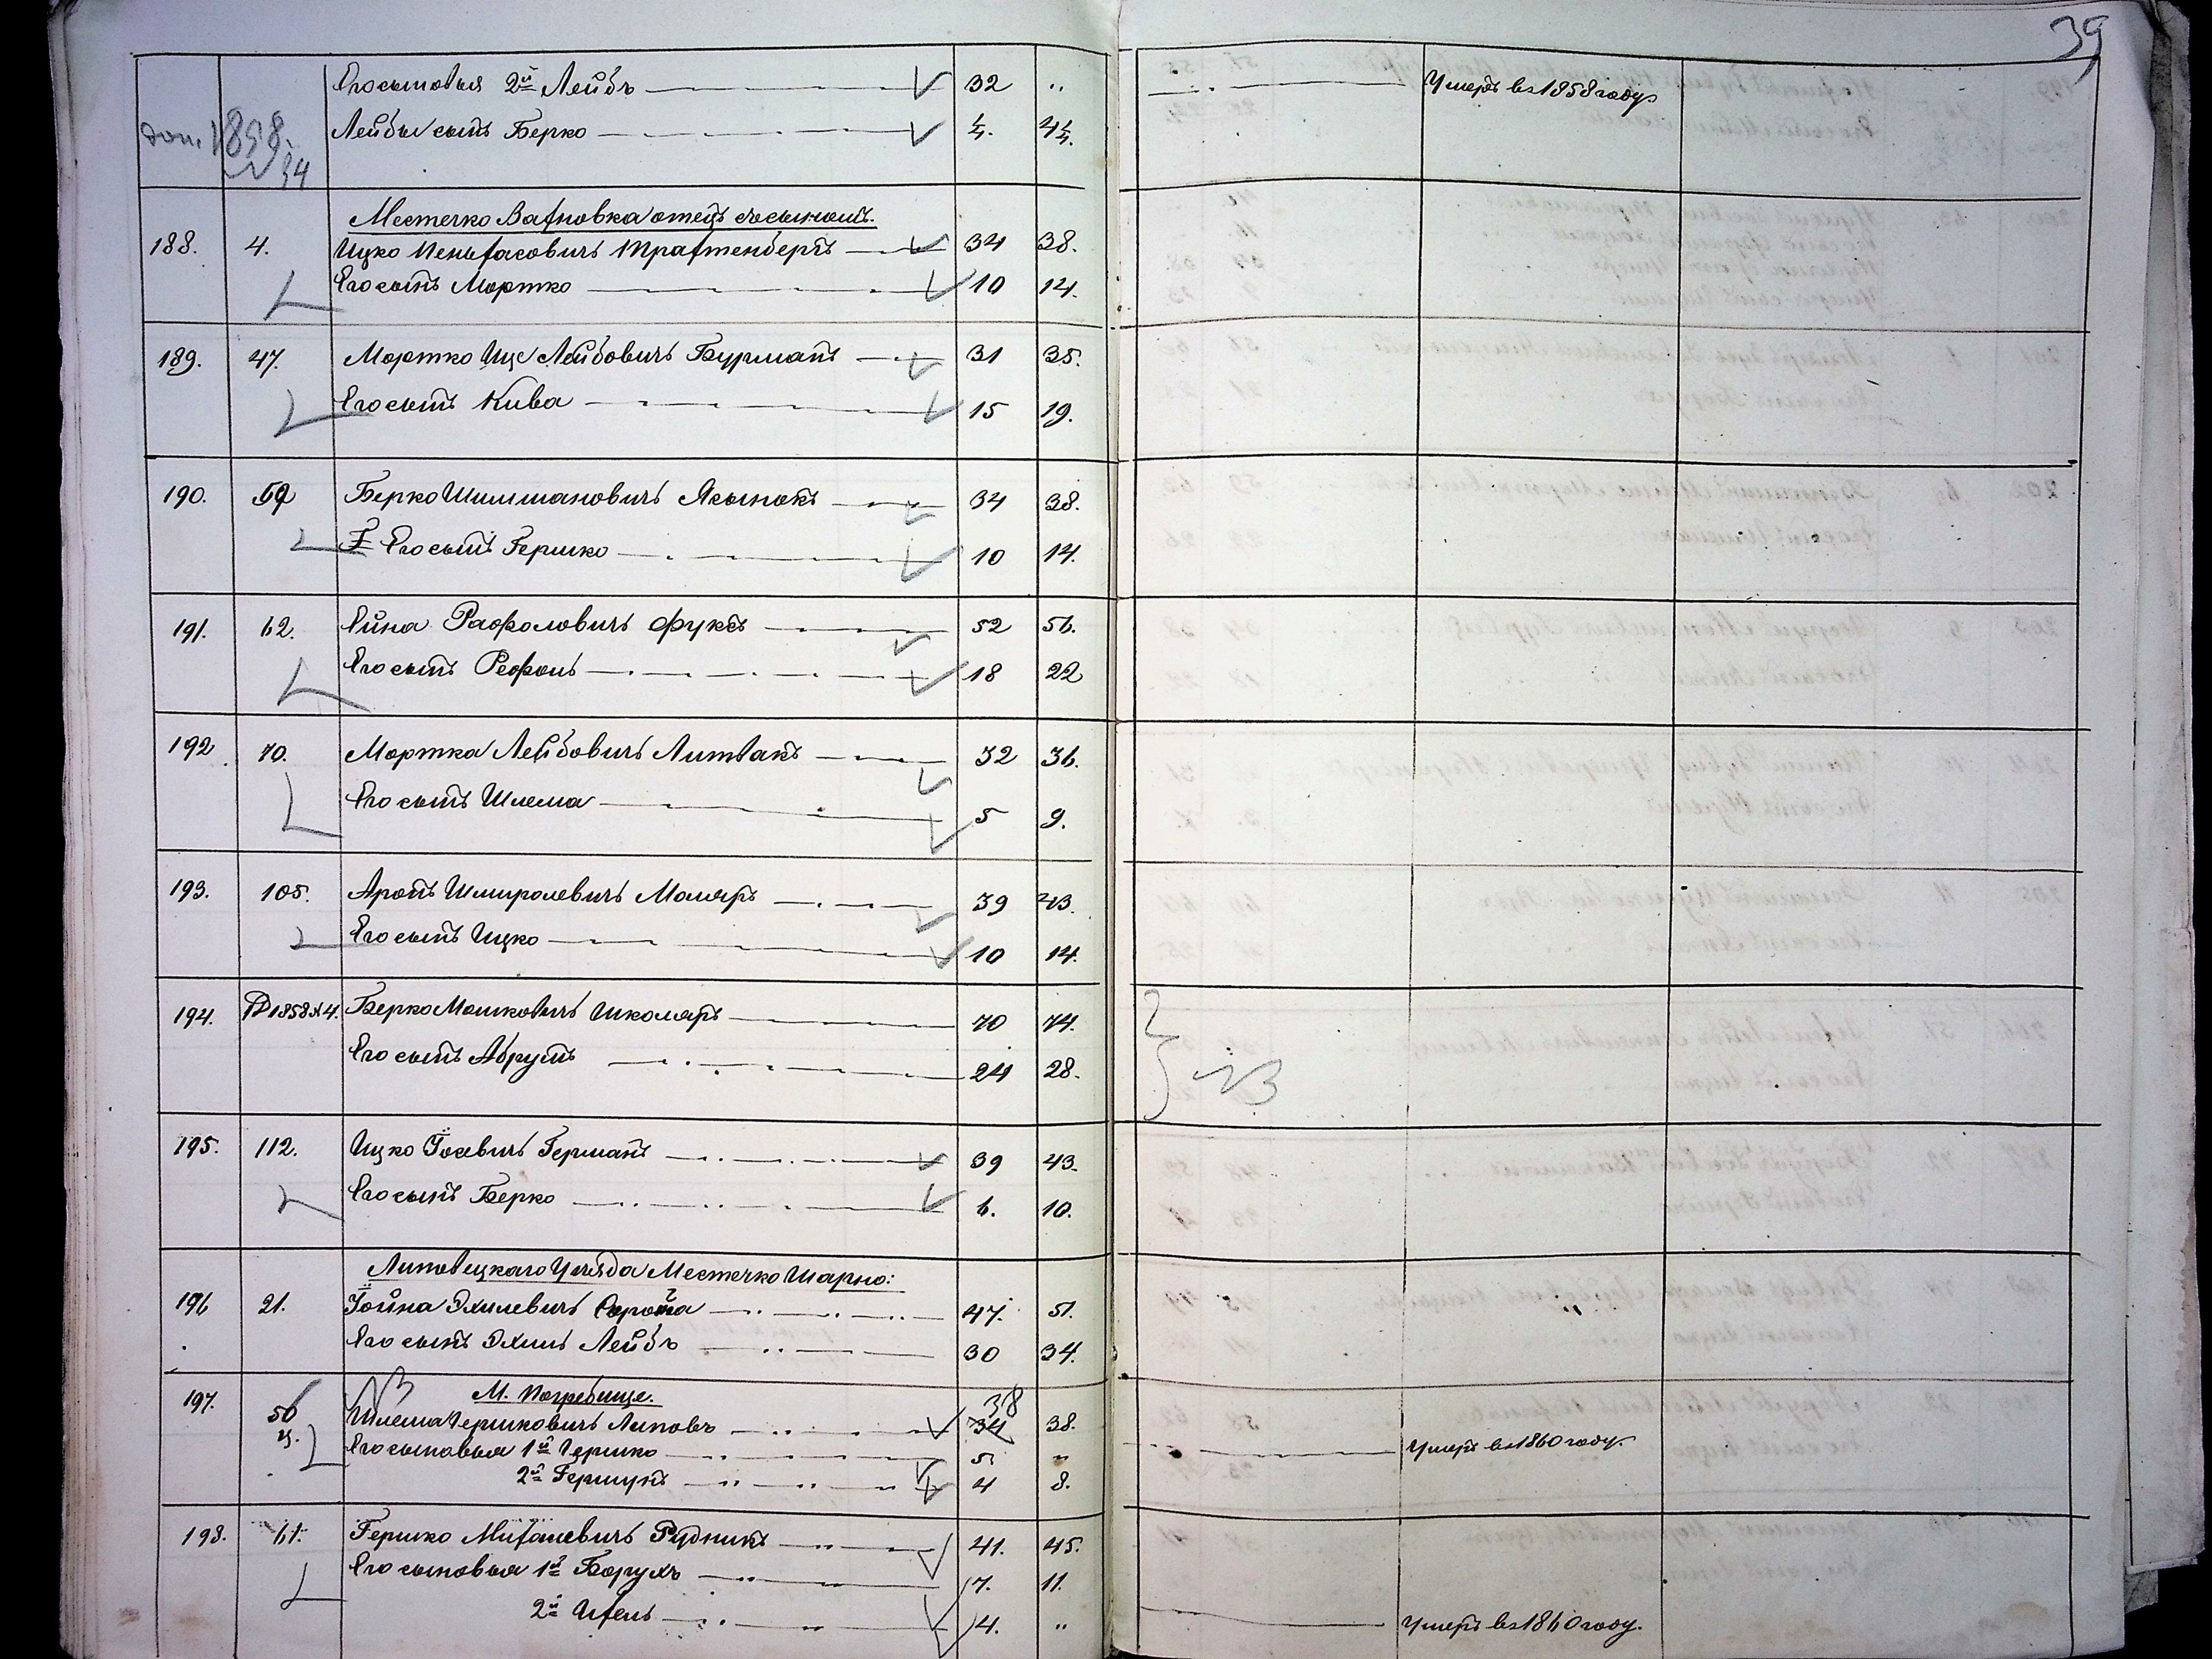 39
Его сыновья 2й Лейбъ 32 „ Умеръ въ 1858 году
доп. 1858. 34
Лейбы сынъ Берко ½. 4½.
Местечко Вахновка отецъ съ сыномъ.
188. 4. Ицко Пеньхасовичъ Трахтенбергъ 34 38.
Его сынъ Мортко 10 14.
189. 47. Мортко Ице Лейбовичъ Бурманъ 31 35.
Его сынъ Кива 15 19.
190. 59 Берко Шимшановичъ Ясынокъ 34 38.
Его сынъ Гершко 10 14.
191. 62. Ейна Рафаловичъ Фуксъ 52 56.
Его сынъ Рефоль 18 22
192. 70. Мортка Лейбовичъ Литвакъ 32 36.
Его сынъ Шлема 5 9.
193. 105. Аронъ Шмиролевичъ Маляръ 39 43.
Его сынъ Ицко 10 14.
194. Д 1858 №4. Берко Мошковичъ Школяръ 70 74.
Его сынъ Абрумъ 24 28.
195. 112. Ицко Іосевичъ Германъ 39 43.
Его сынъ Берко 6. 10.
Липовецкаго Уезда Местечко Шарно:
196 21. Іойна Эхилевичъ Сирота 47. 51.
Его сынъ Эхиль Лейбъ 30 34.
М. Погребище.
38
197. 56 Шлема Гершковичъ Липовъ 34 38.
Его сыновья 1й Гершко 5 „ Умеръ въ 1860 году.
2й Гершунъ 4 8.
198. 61. Гершко Михалевичъ Рудникъ 41. 45.
Его сыновья 1й Борухъ 7. 11.
2й Ихель 4. „ Умеръ въ 1860 году.